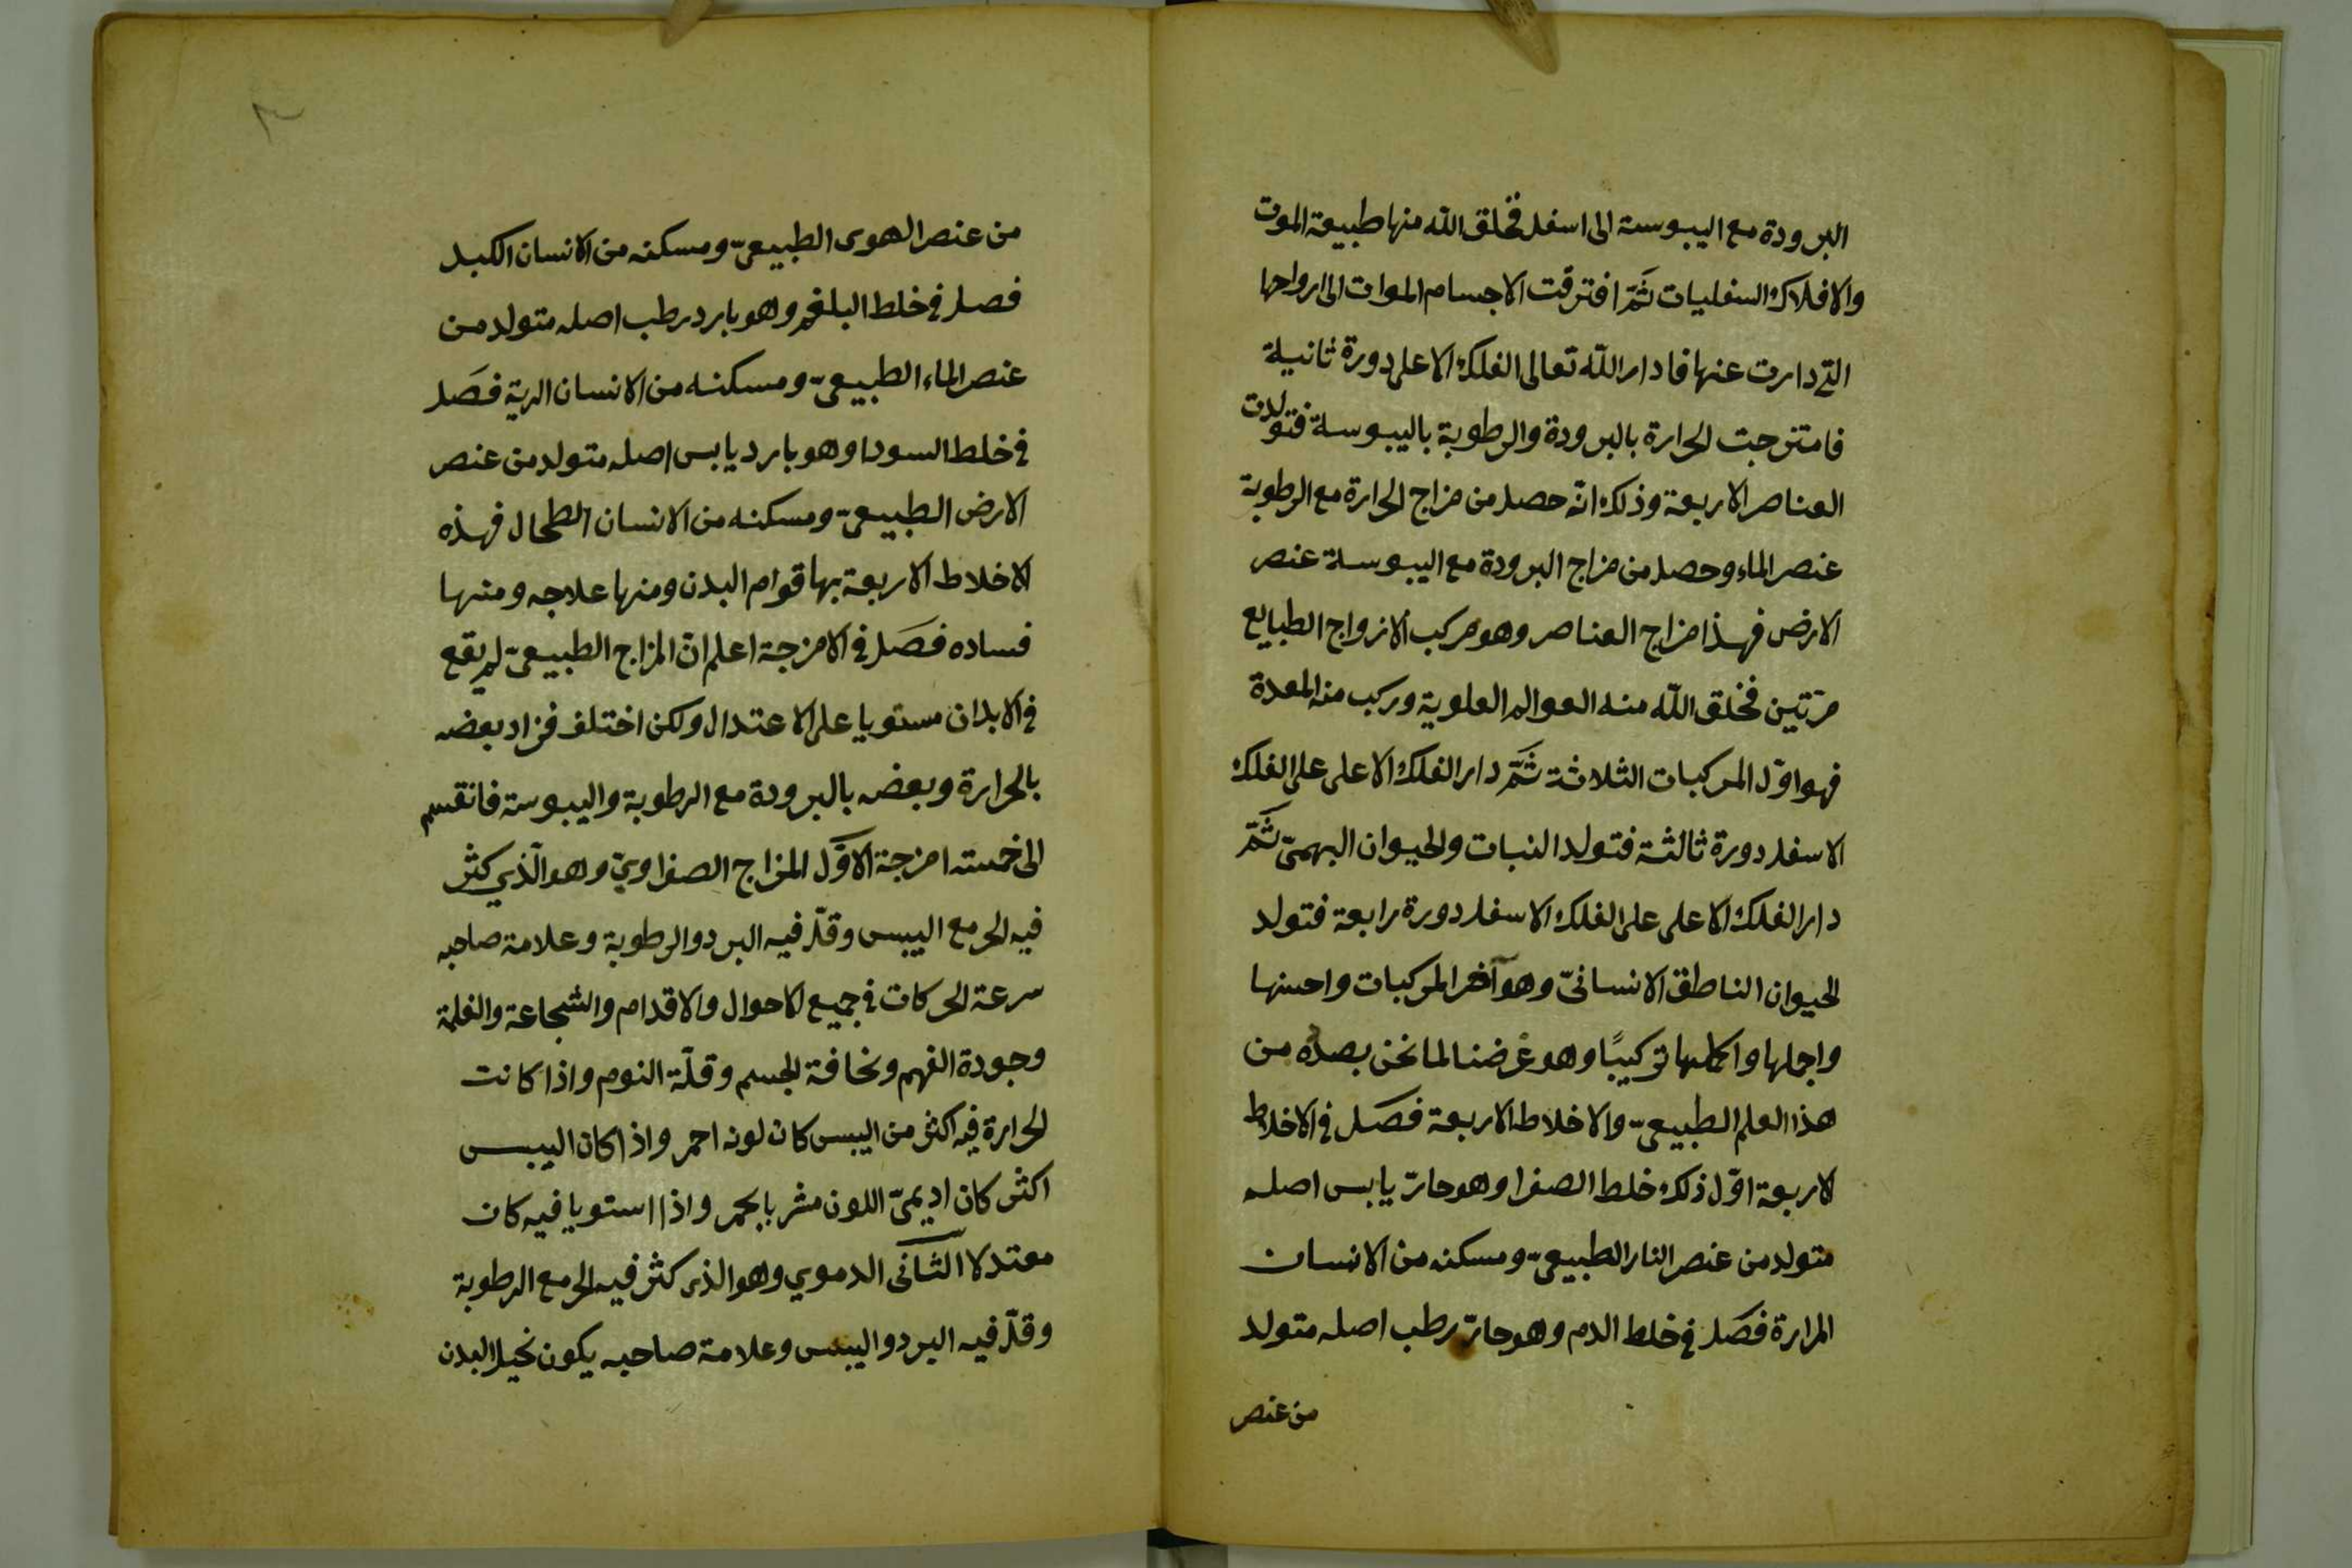 البرودة مع اليبوسة الى اسفل فخلق الله منها طبيعة الموت
والافلاك السفليات ثمّ افترقت الاجسام الموات الى ارواحها
التى دارت عنها فادار اللّه تعالى الفلك الاعلى دورة ثانية
فامتزجت الحرارة بالبرودة والرطوبة باليبوسة فتولدت
العناصر الاربعة وذلك انّه حصل من مزاج الحرارة مع الرطوبة
عنصر الماء وحصل من مزاج البرودة مع اليبوسة عنصر
الارض فهذا مزاج العناصر وهو مركب الازواج الطبايع
مرّتين فخلق اللّه منه العوالم العلوية وركب منه المعدة
فهو اوّل المركبات الثلاثة ثمّ دار الفلك الاعلى على الفلك
الاسفل دورة ثالثة فتولد النبات والحيوان البهمىّ ثمّ
دار الفلك الاعلى على الفلك الاسفل دورة رابعة فتولد
الحيوان الناطق الانسانىّ وهو آخر المركبات واحسنها
واجملها واكملها تركيبًا وهو غرضنا لما نحن بصدده من
هذا العلم الطبيعىّ والاخلاط الاربعة فصل فى الاخلاط
الاربعة اوّل ذلك خلط الصفرا وهو حارّ يابس اصله
متولد من عنصر النار الطبيعىّ ومسكنه من الانسان
المرارة فصل فى خلط الدم وهو حارّ رطب اصله متولد
من عنصر
من عنصر الهوى الطبيعىّ ومسكنه من الانسان الكبد
فصل فى خلط البلغم وهو بارد رطب اصله متولد من
عنصر الماء الطبيعىّ ومسكنه من الانسان الرية فصل
فى خلط السودا وهو بارد يابس اصله متولد من عنصر
الارض الطبيعىّ ومسكنه من الانسان الطحال فهذه
الاخلاط الاربعة بها قوام البدن ومنها علاجه ومنها
فساده فصل فى الامزجة اعلم انّ المزاج الطبيعىّ لم يقع
فى الابدان مستويا على الاعتدال ولكن اختلف فزاد بعضه
بالحرارة وبعضه بالبرودة مع الرطوبة واليبوسة فانقسم
الى خمسة امزجة الاوّل المزاج الصفراوىّ وهو الّذي كثر
فيه الحر مع اليبس وقلّ فيه البرد والرطوبة وعلامة صاحبه
سرعة الحركات فى جميع الاحوال والاقدام والشجاعة والغلمة
وجودة الفهم ونحافة الجسم وقلّة النوم واذا كانت
الحرارة فيه اكثر من اليبس كان لونه احمر واذا كان اليبس
اكثر كان اديمىّ اللون مشربا بحمر واذا استويا فيه كان
معتدلا الثّانى الدموي وهو الذى كثر فيه الحر مع الرطوبة
وقلّ فيه البرد واليبس وعلامة صاحبه يكون نحيل البدن